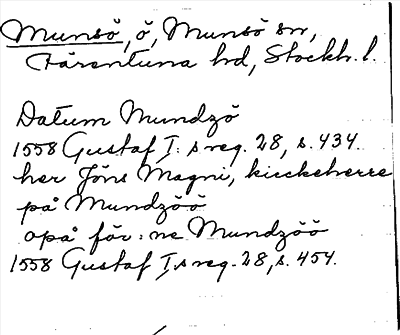 Munsö, ö, Munsö sn,
Färentuna hd, Stockh. l.
Datum Mundzö
1558 Gustaf I:s reg. 28, s. 434.
her Jöns Magni, kirckeherre
på Mundzöö
opå för:ne Mundzöö
1558 Gustaf I:s reg. 28, s. 454.